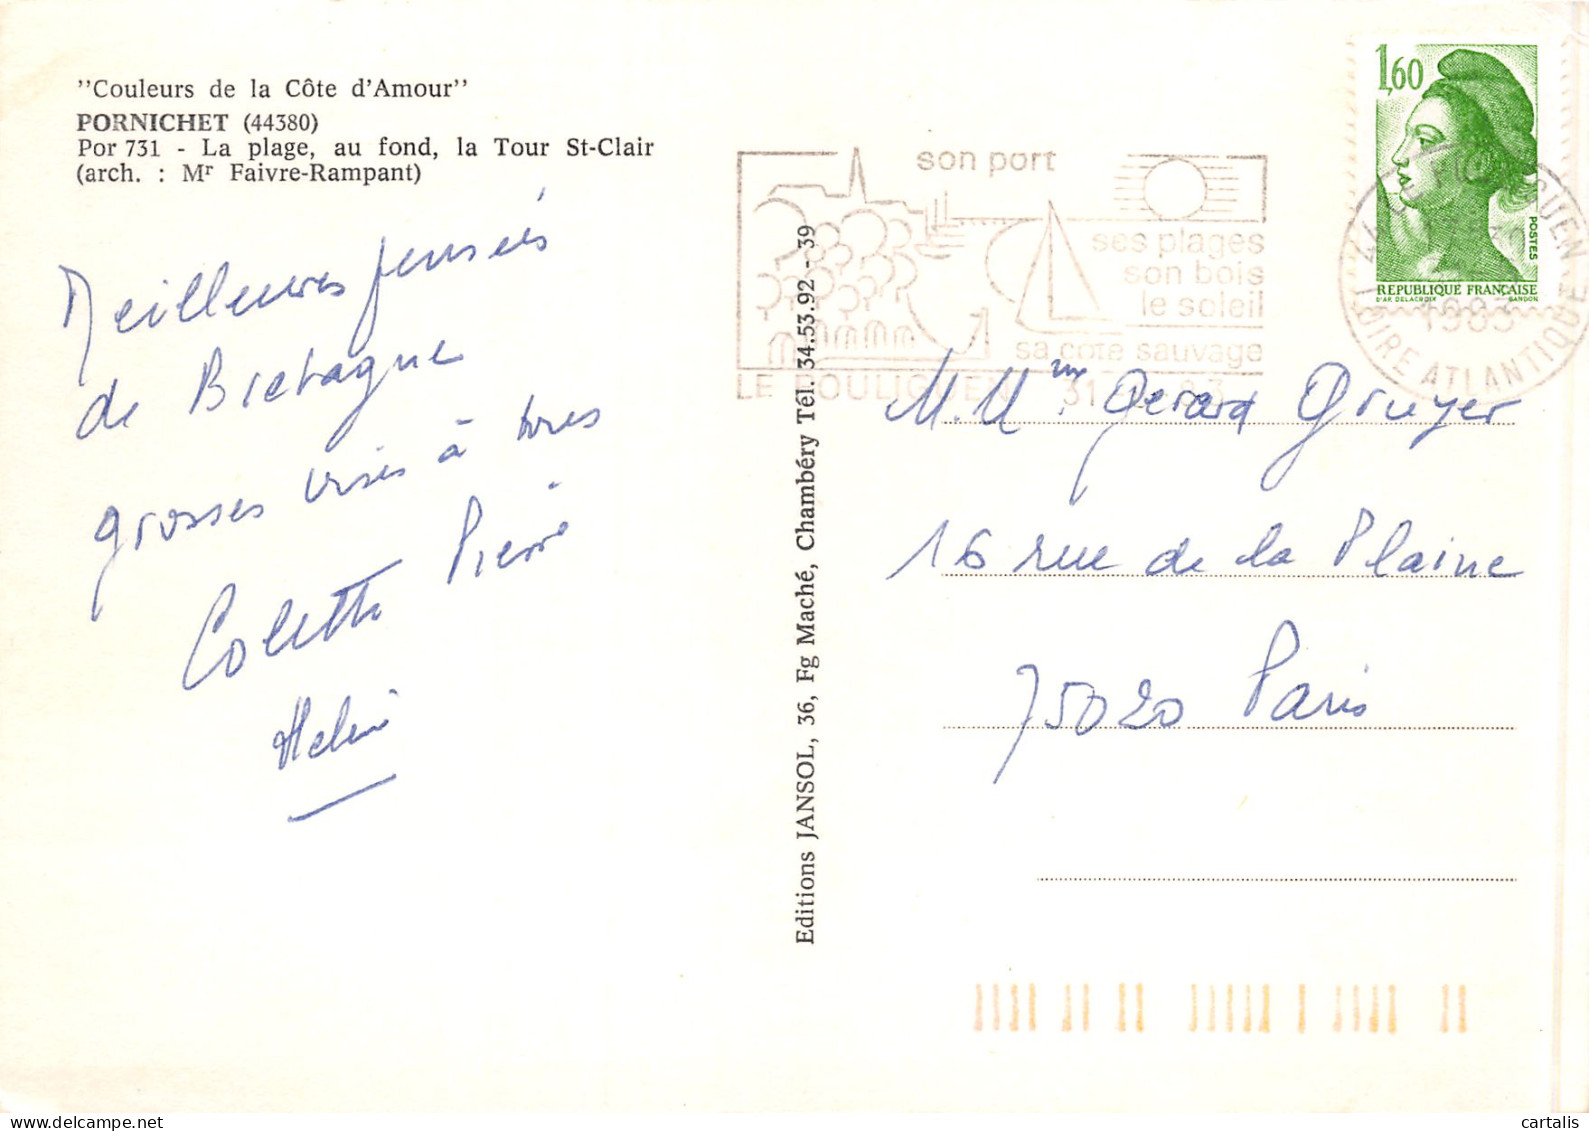 "Couleurs de la Côte d'Amour"
PORNICHET (44380)
Por 731 - La plage, au fond, la Tour St-Clair
(arch. : Mr Faivre-Rampant)
Meilleures pensées
de Bretagne
grosses bises à tous
Colette Pierre
Helène
Editions JANSOL, 36, Fg Maché, Chambéry Tél. 34.53.92 - 39
son port
ses plages
son bois
le soleil
sa côte sauvage
LE POULIGUEN 31
1,60
POSTES
REPUBLIQUE FRANÇAISE
D'AP. DELACROIX GANDON
1983
LOIRE ATLANTIQUE
M. Mme Gerard Gruyer
16 rue de la Plaine
75020 Paris
cartalis